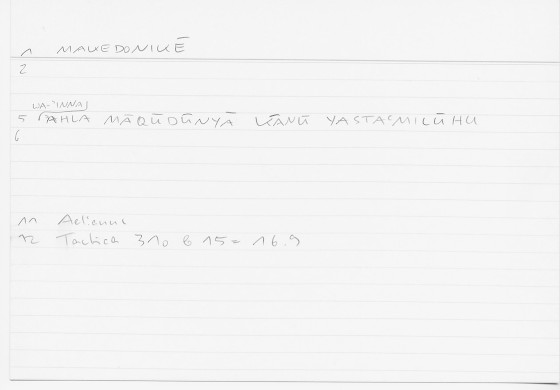 1 MAKEDONIKĒ
2
WA-'INNA
5 'AHLA MĀQŪDŪNYĀ KĀNŪ YASTAʿMILŪHU
6
11 Aelianus
12 Tactica 310 B 15 = 16.9